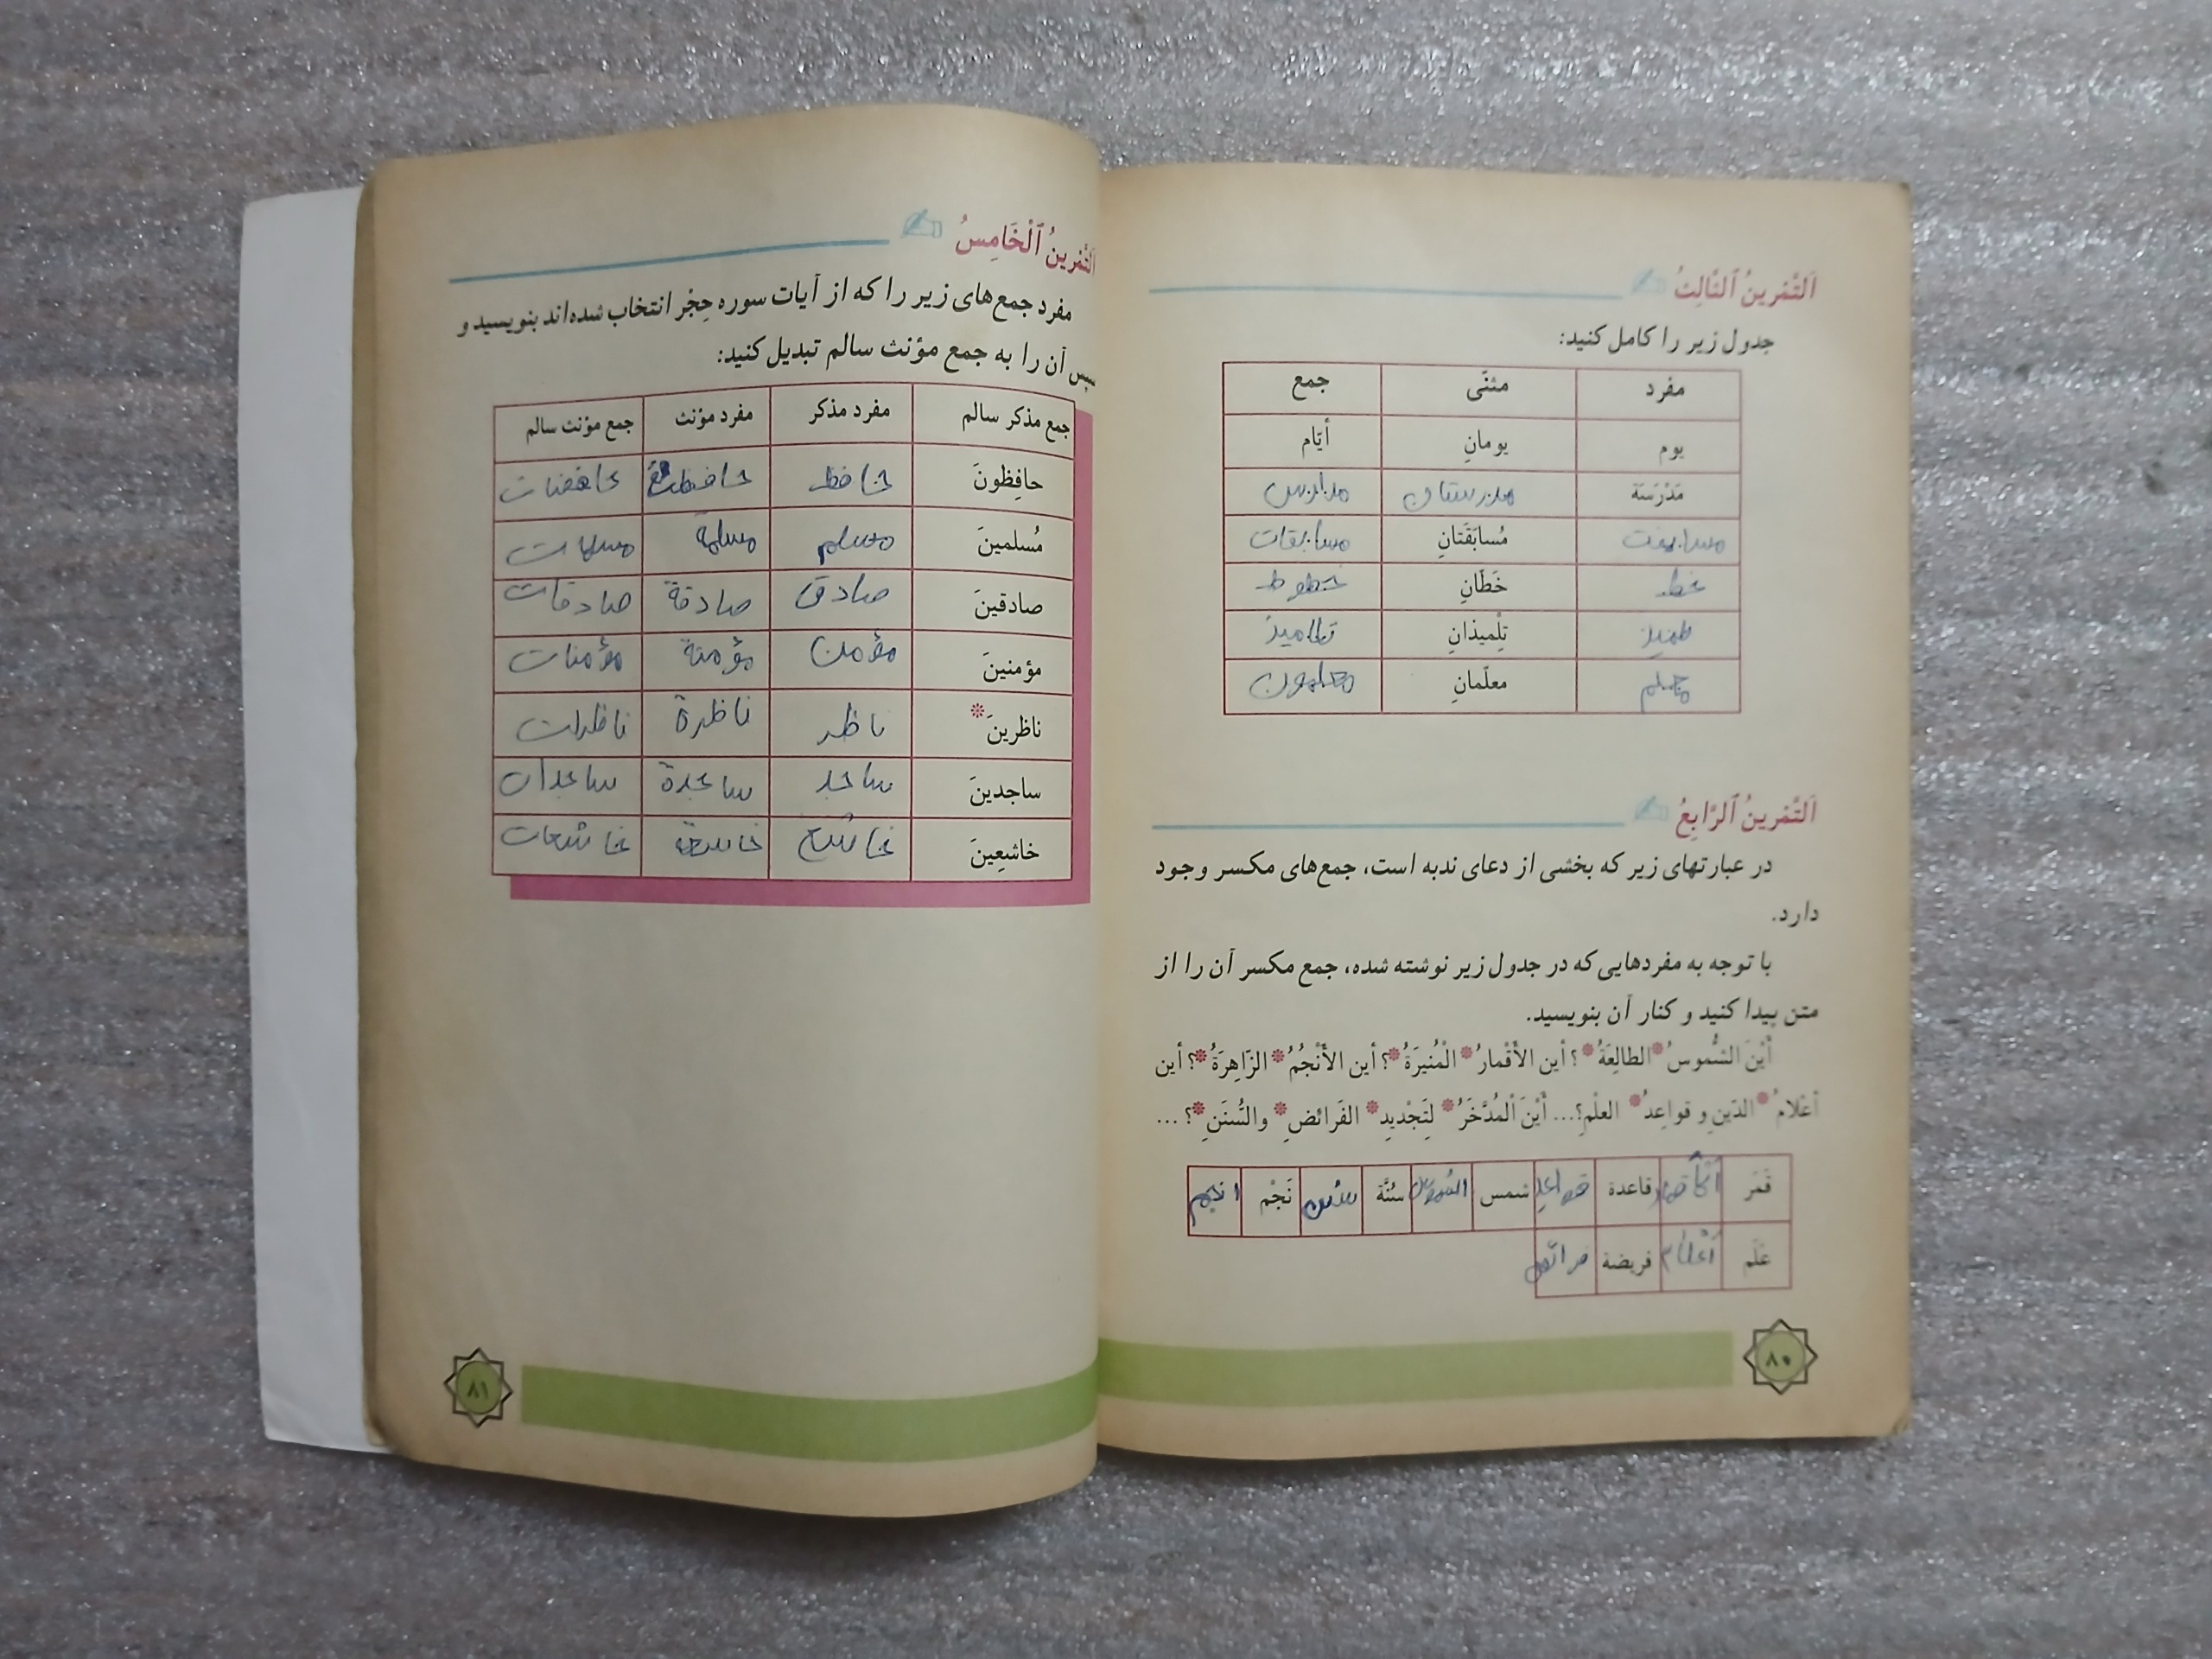 اَلتَّمْرينُ ٱلثّالِثُ
جدول زیر را کامل کنید:
مفرد مثنّی جمع
یوم یومانِ أیّام
مَدْرَسَة مدرستان مدارس
مسابقت مُسابَقَتانِ مسابقات
خط خَطّانِ خطوط
تِلْمیذانِ تلامیذ
معلم معلّمانِ معلمون
اَلتَّمْرينُ ٱلرّابِعُ
در عبارتهای زیر که بخشی از دعای ندبه است، جمع‌های مکسر وجود
دارد.
با توجه به مفردهایی که در جدول زیر نوشته شده، جمع مکسر آن را از
متن پیدا کنید و کنار آن بنویسید.
أَيْنَ الشُّموسُ* الطالِعَةُ*؟ أين الأَقْمارُ* الْمُنيرَةُ*؟ أين الأَنْجُمُ* الزّاهِرَةُ*؟ أين
أعْلامُ* الدّينِ و قواعِدُ* العلْمِ؟... أَيْنَ الْمُدَّخَرُ* لِتَجْديدِ* الفَرائضِ* والسُّنَنِ*؟ ...
قَمَر الأقمار قاعدة قواعد شمس الشموس سُنَّة سنن نَجْم انجم
عَلَم أعلام فریضة فرائض
۸۰
اَلتَّمْرينُ ٱلْخَامِسُ
مفرد جمع‌های زیر را که از آیات سوره حِجْر انتخاب شده‌اند بنویسید و
سپس آن را به جمع مؤنث سالم تبدیل کنید:
جمع مذکر سالم مفرد مذکر مفرد مؤنث جمع مؤنث سالم
حافِظونَ حافظ حافظة حافضات
مُسلمینَ مسلم مسلمة مسلمات
صادقینَ صادق صادقة صادقات
مؤمنینَ مؤمن مؤمنة مؤمنات
ناظرینَ* ناظر ناظرة ناظرات
ساجدینَ ساجد ساجدة ساجدات
خاشِعِینَ خاشع خاشعة خاشعات
۸۱